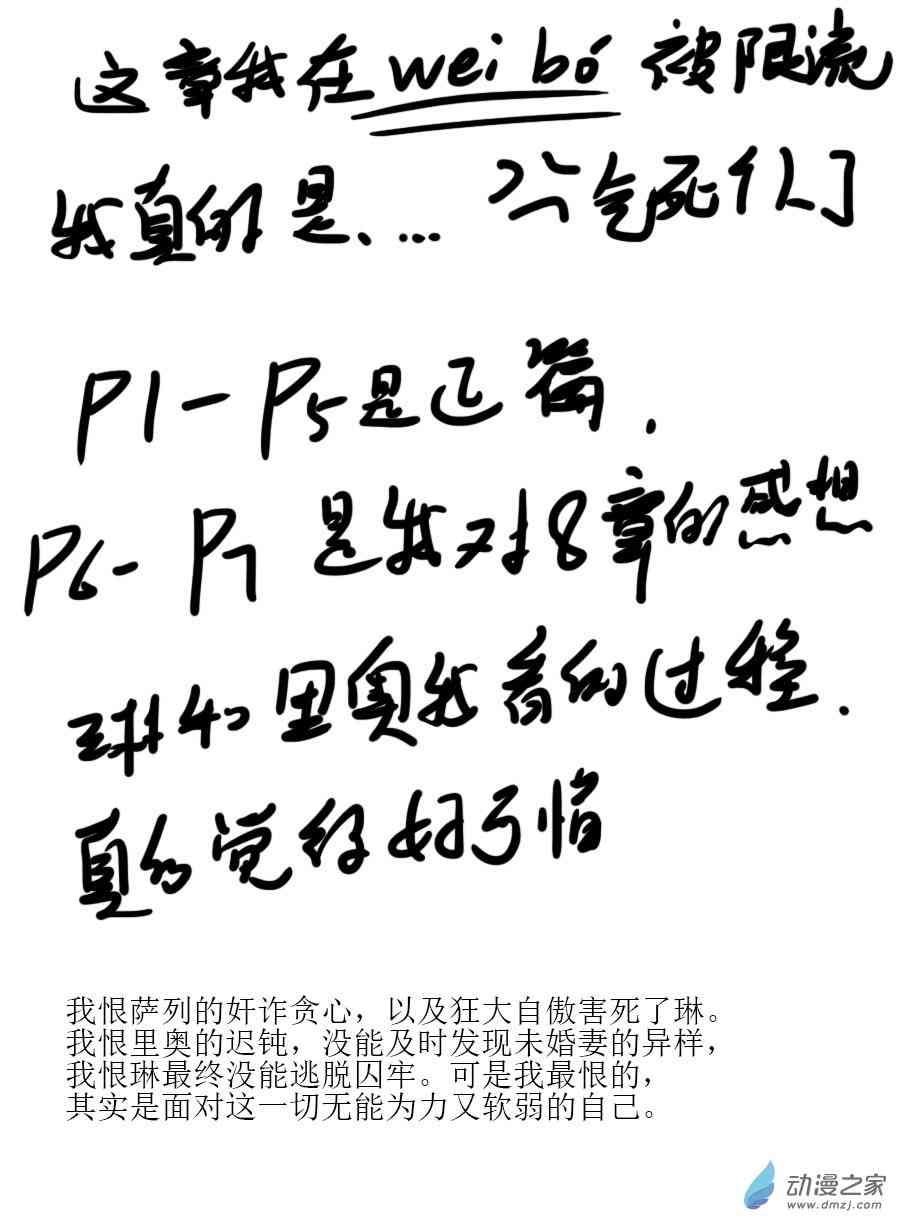 这章我在wei bó 被限流
我真的是、... 气死了
P1-P5是正篇.
P6-P7 是我对8章的感想
琳和里奥我看的过程.
真的觉得好可惜
我恨萨列的奸诈贪心，以及狂大自傲害死了琳。
我恨里奥的迟钝，没能及时发现未婚妻的异样，
我恨琳最终没能逃脱囚牢。可是我最恨的，
其实是面对这一切无能为力又软弱的自己。
动漫之家
www.dmzj.com